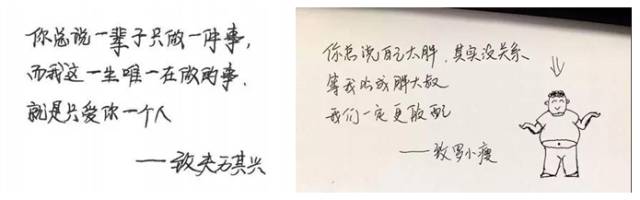 你总说一辈子只做一件事，
而我这一生唯一在做的事，
就是只爱你一个人
——致夫万其兴
你总说自己太胖，其实没关系
等我出成胖大叔
我们一定更般配
——致罗小瘦